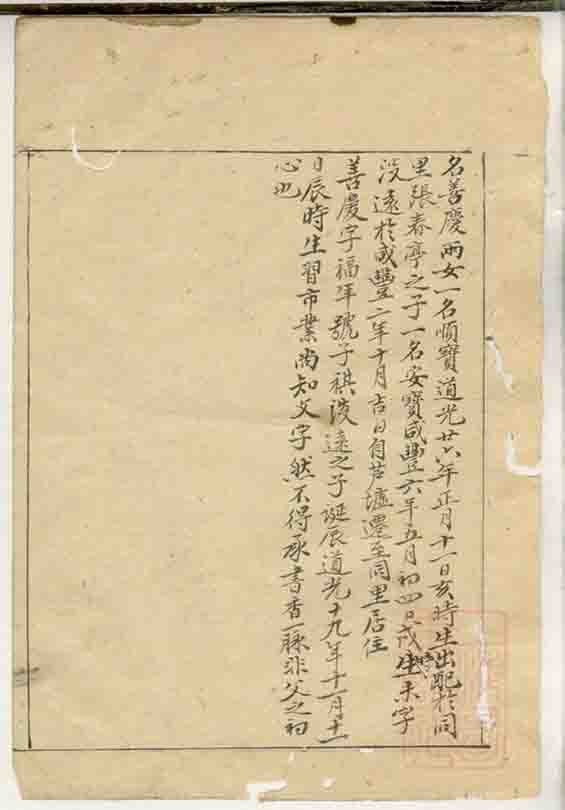 名善慶兩女一名順寶道光廿六年正月十一日亥時生出配於同
里張春亭之子一名安寶咸豐六年五月初四日戌時生未字
浚遠於咸豐二年十月吉日自芦墟遷至同里居住
善慶字福年號子祺浚遠之子誕辰道光十九年十一月十一
日辰時生習市業尚知文字然不得承書香一脉非父之初
心也